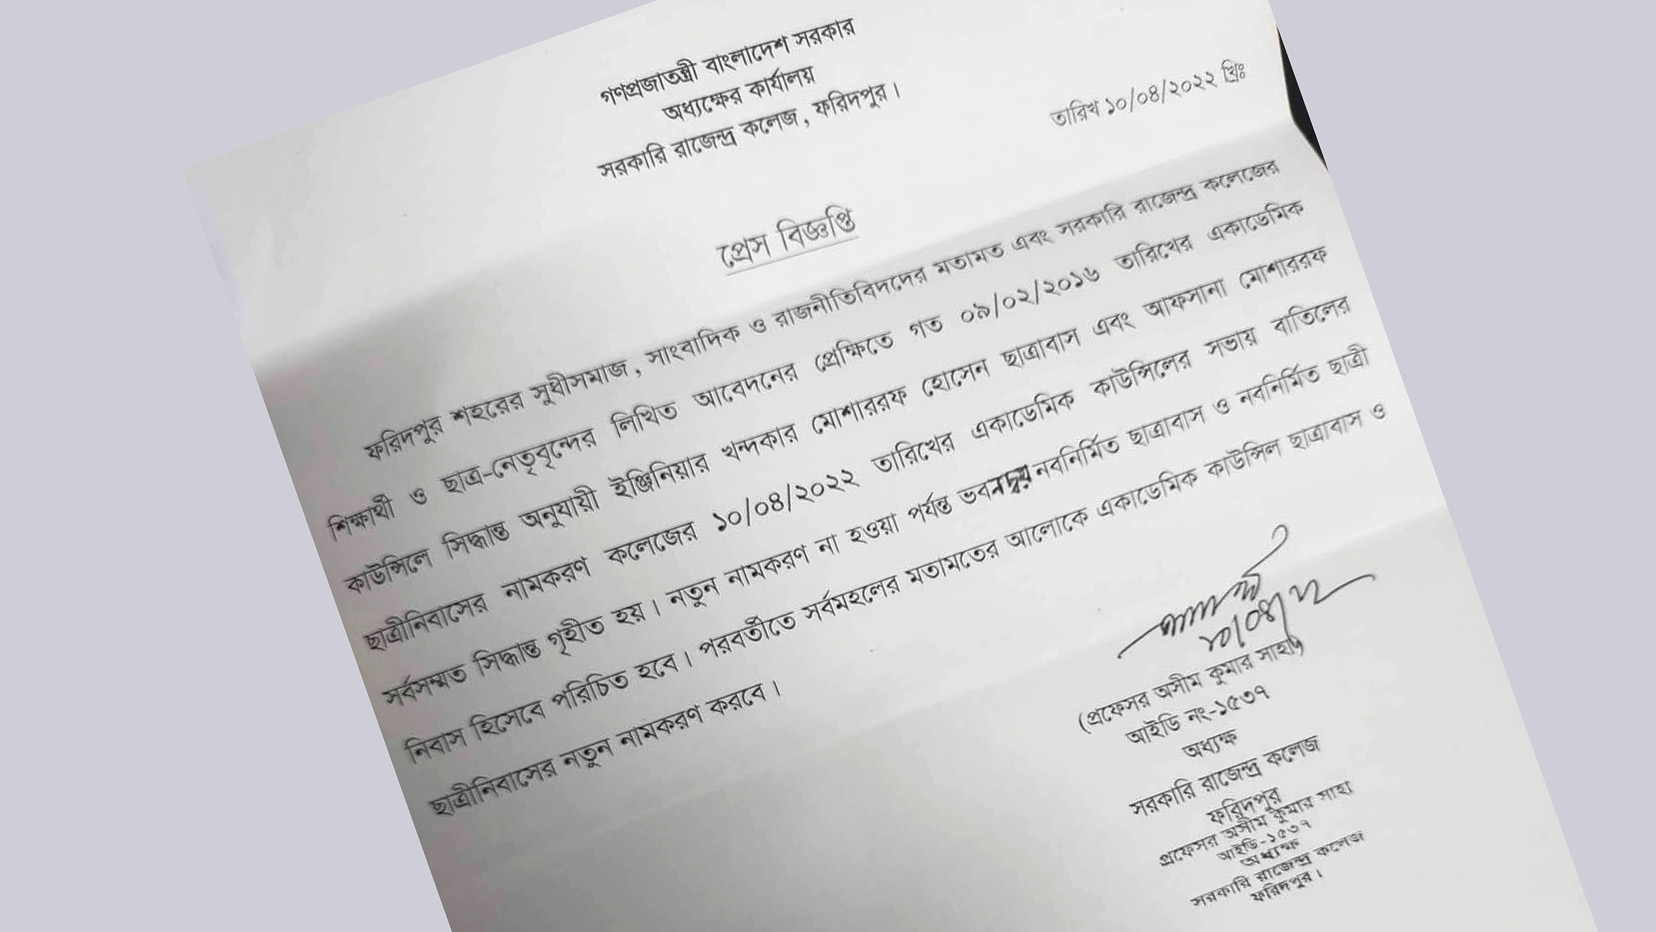 গণপ্রজাতন্ত্রী বাংলাদেশ সরকার
অধ্যক্ষের কার্যালয়
সরকারি রাজেন্দ্র কলেজ, ফরিদপুর।
তারিখ ১০/০৪/২০২২ খ্রিঃ
প্রেস বিজ্ঞপ্তি
ফরিদপুর শহরের সুধীসমাজ, সাংবাদিক ও রাজনীতিবিদদের মতামত এবং সরকারি রাজেন্দ্র কলেজের
শিক্ষার্থী ও ছাত্র-নেতৃবৃন্দের লিখিত আবেদনের প্রেক্ষিতে গত ০৯/০২/২০১৬ তারিখের একাডেমিক
কাউন্সিলে সিদ্ধান্ত অনুযায়ী ইঞ্জিনিয়ার খন্দকার মোশাররফ হোসেন ছাত্রাবাস এবং আফসানা মোশাররফ
ছাত্রীনিবাসের নামকরণ কলেজের ১০/০৪/২০২২ তারিখের একাডেমিক কাউন্সিলের সভায় বাতিলের
সর্বসম্মত সিদ্ধান্ত গৃহীত হয়। নতুন নামকরণ না হওয়া পর্যন্ত নবনির্মিত ছাত্রাবাস ও নবনির্মিত ছাত্রী
নিবাস হিসেবে পরিচিত হবে। পরবর্তীতে সর্বমহলের মতামতের আলোকে একাডেমিক কাউন্সিল ছাত্রাবাস ও
ছাত্রীনিবাসের নতুন নামকরণ করবে।
১০/০৪/২২
(প্রফেসর অসীম কুমার সাহা)
আইডি নং-১৫৩৭
অধ্যক্ষ
সরকারি রাজেন্দ্র কলেজ
ফরিদপুর
প্রফেসর অসীম কুমার সাহা
আইডি-১৫৩৭
অধ্যক্ষ
সরকারি রাজেন্দ্র কলেজ
ফরিদপুর।